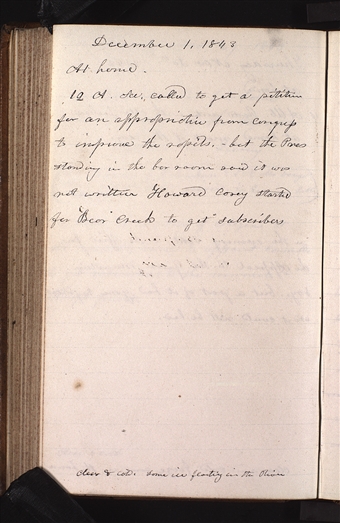 December 1, 1843
At home.
12 A. Lee, called to get a petition
for an appropriation from congress
to improve the rapids, - but the Pres
standing in the bar room said it was
not written Howard Corey started
for "Bear" Creek to get subscribers
clear & cold. some ice floating in the River